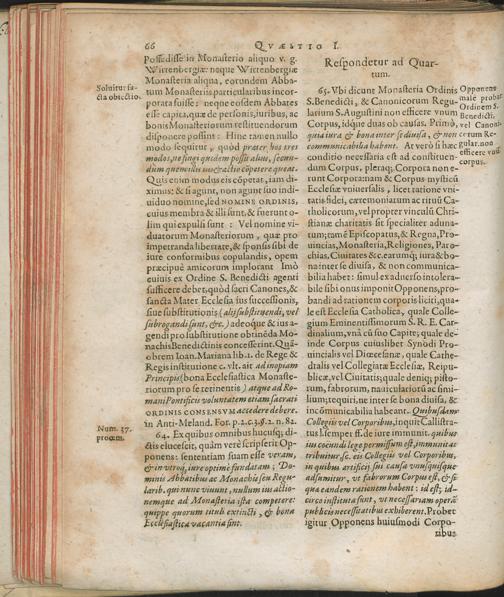 66 QVÆSTIO I.
Possedisse in Monasterio aliquo v. g.
Wirtenbergiæ: neque Wirtenbergiæ
Monasteria aliqua, eorundem Abba-
tum Monasteriis particularibus incor-
porata fuisse: neque eosdem Abbates
esse capita, quæ de personis, iuribus, ac
bonis Monasteriorum restituendorum
disponere possint: Hinc tamen nullo
modo sequitur, quòd præter hos tres
modos, ne fingi quidem possit alius, secun-
dum quem illis vox & actio cōpetere queat.
Quis enim modus eis cōpetat, iam di-
ximus: & si agunt, non agunt suo indi-
uiduo nomine, sed NOMINE ORDINIS,
cuius membra & illi sunt, & fuerunt o-
lim qui expulsi sunt: Vel nomine vi-
duatorum Monasteriorum, quæ pro
impetranda libertate, & sponsis sibi de
iure conformibus copulandis, opem
præcipuè amicorum implorant Imò
cuiuis ex Ordine S. Benedicti agenti
sufficere debet, quòd sacri Canones, &
sancta Mater Ecclesia ius successionis,
siue substitutionis (alii substituendi, vel
subrogandi sunt, &c.) adeoque & ius a-
gendi pro substitutione obtinēda Mo-
nachis Benedictinis concesserint. Quā-
obrem Ioan. Mariana lib. 1. de Rege &
Regis institutione c. vlt. ait ad inopiam
Principis (bona Ecclesiastica Monaste-
riorum pro se retinentis) atque ad Ro-
mani Pontificis voluntatem etiam sacrati
ORDINIS CONSENSVM accedere debere.
in Anti-Meland. For. p. 1. c. 3. §. 2. n. 82.
64. Ex quibus omnibus hucusq; di-
ctis elucescit, quàm verè scripserit Op-
ponens: sententiam suam esse veram,
& in vtroq́; iure optimè fundatam; Do-
minis Abbatibus ac Monachis seu Regu-
larib. qui nunc viuunt, nullum ius actio-
nemque ad Monasteria ista competere:
quippe quorum tituli extincti, & bona
Ecclesiastica vacantia sint.
Solvitur fa-
cta obiectio.
Num. 37.
procem.
Respondetur ad Quar-
tum.
65. Vbi dicunt Monasteria Ordinis
S. Benedicti, & Canonicorum Regu-
larium S. Augustini non efficere vnum
Corpus, idque duas ob causas. Primò,
quia iura & bona inter se diuisa, & non
communicabilia habent. At verò si hæc
conditio necessaria est ad constituen-
dum Corpus, pleraq; Corpora non e-
runt Corporaliam & Corpus mysticū
Ecclesiæ vniuersalis, licet ratione vni-
tatis fidei, cæremoniarum ac rituū Ca-
tholicorum, vel propter vinculū Chri-
stianæ charitatis sit specialiter aduna-
tum; tamē Episcopatus, & Regna, Pro-
uincias, Monasteria, Religiones, Paro-
chias, Ciuitates &c. earumq; iura & bo-
na inter se diuisa, & non communica-
bilia habet: simul ex aduerso intolera-
bile sibi onus imponit Opponens, pro-
bandi ad rationem corporis liciti, qua-
le est Ecclesia Catholica, quale Colle-
gium Eminentissimorum S. R. E. Car-
dinalium, vnà cū suo Capite; quale de-
inde Corpus cuiuslibet Synodi Pro-
uincialis vel Diœcesanæ, quale Cathe-
dralis vel Collegiatæ Ecclesiæ, Reipu-
blicæ, vel Ciuitatis; quale deniq; pisto-
rum, fabrorum, naviculariorū ac simi-
lium; requiri, ne inter se bona diuisa, &
incōmunicabilia habeant. Quibusdam
Collegiis vel Corporibus, inquit Callistra-
tus l. semper. ff. de iure immunit. quibus
ius coeundi lege permissum est, immunitas
tribuitur, sc. eis Collegiis vel Corporibus,
in quibus artificij sui causa vnusquisque
adsumitur, vt fabrorum Corpus est, & si
qua eandem rationem habent: id est, id-
circo instituta sunt, vt necessariam operā
publicis necessitatibus exhiberent. Probet
igitur Opponens huiusmodi Corpo-
ribus
Opponens
malè probat
Ordinem S.
Benedicti,
vel Canoni-
corum Re-
gular. non
efficere vnū
corpus.